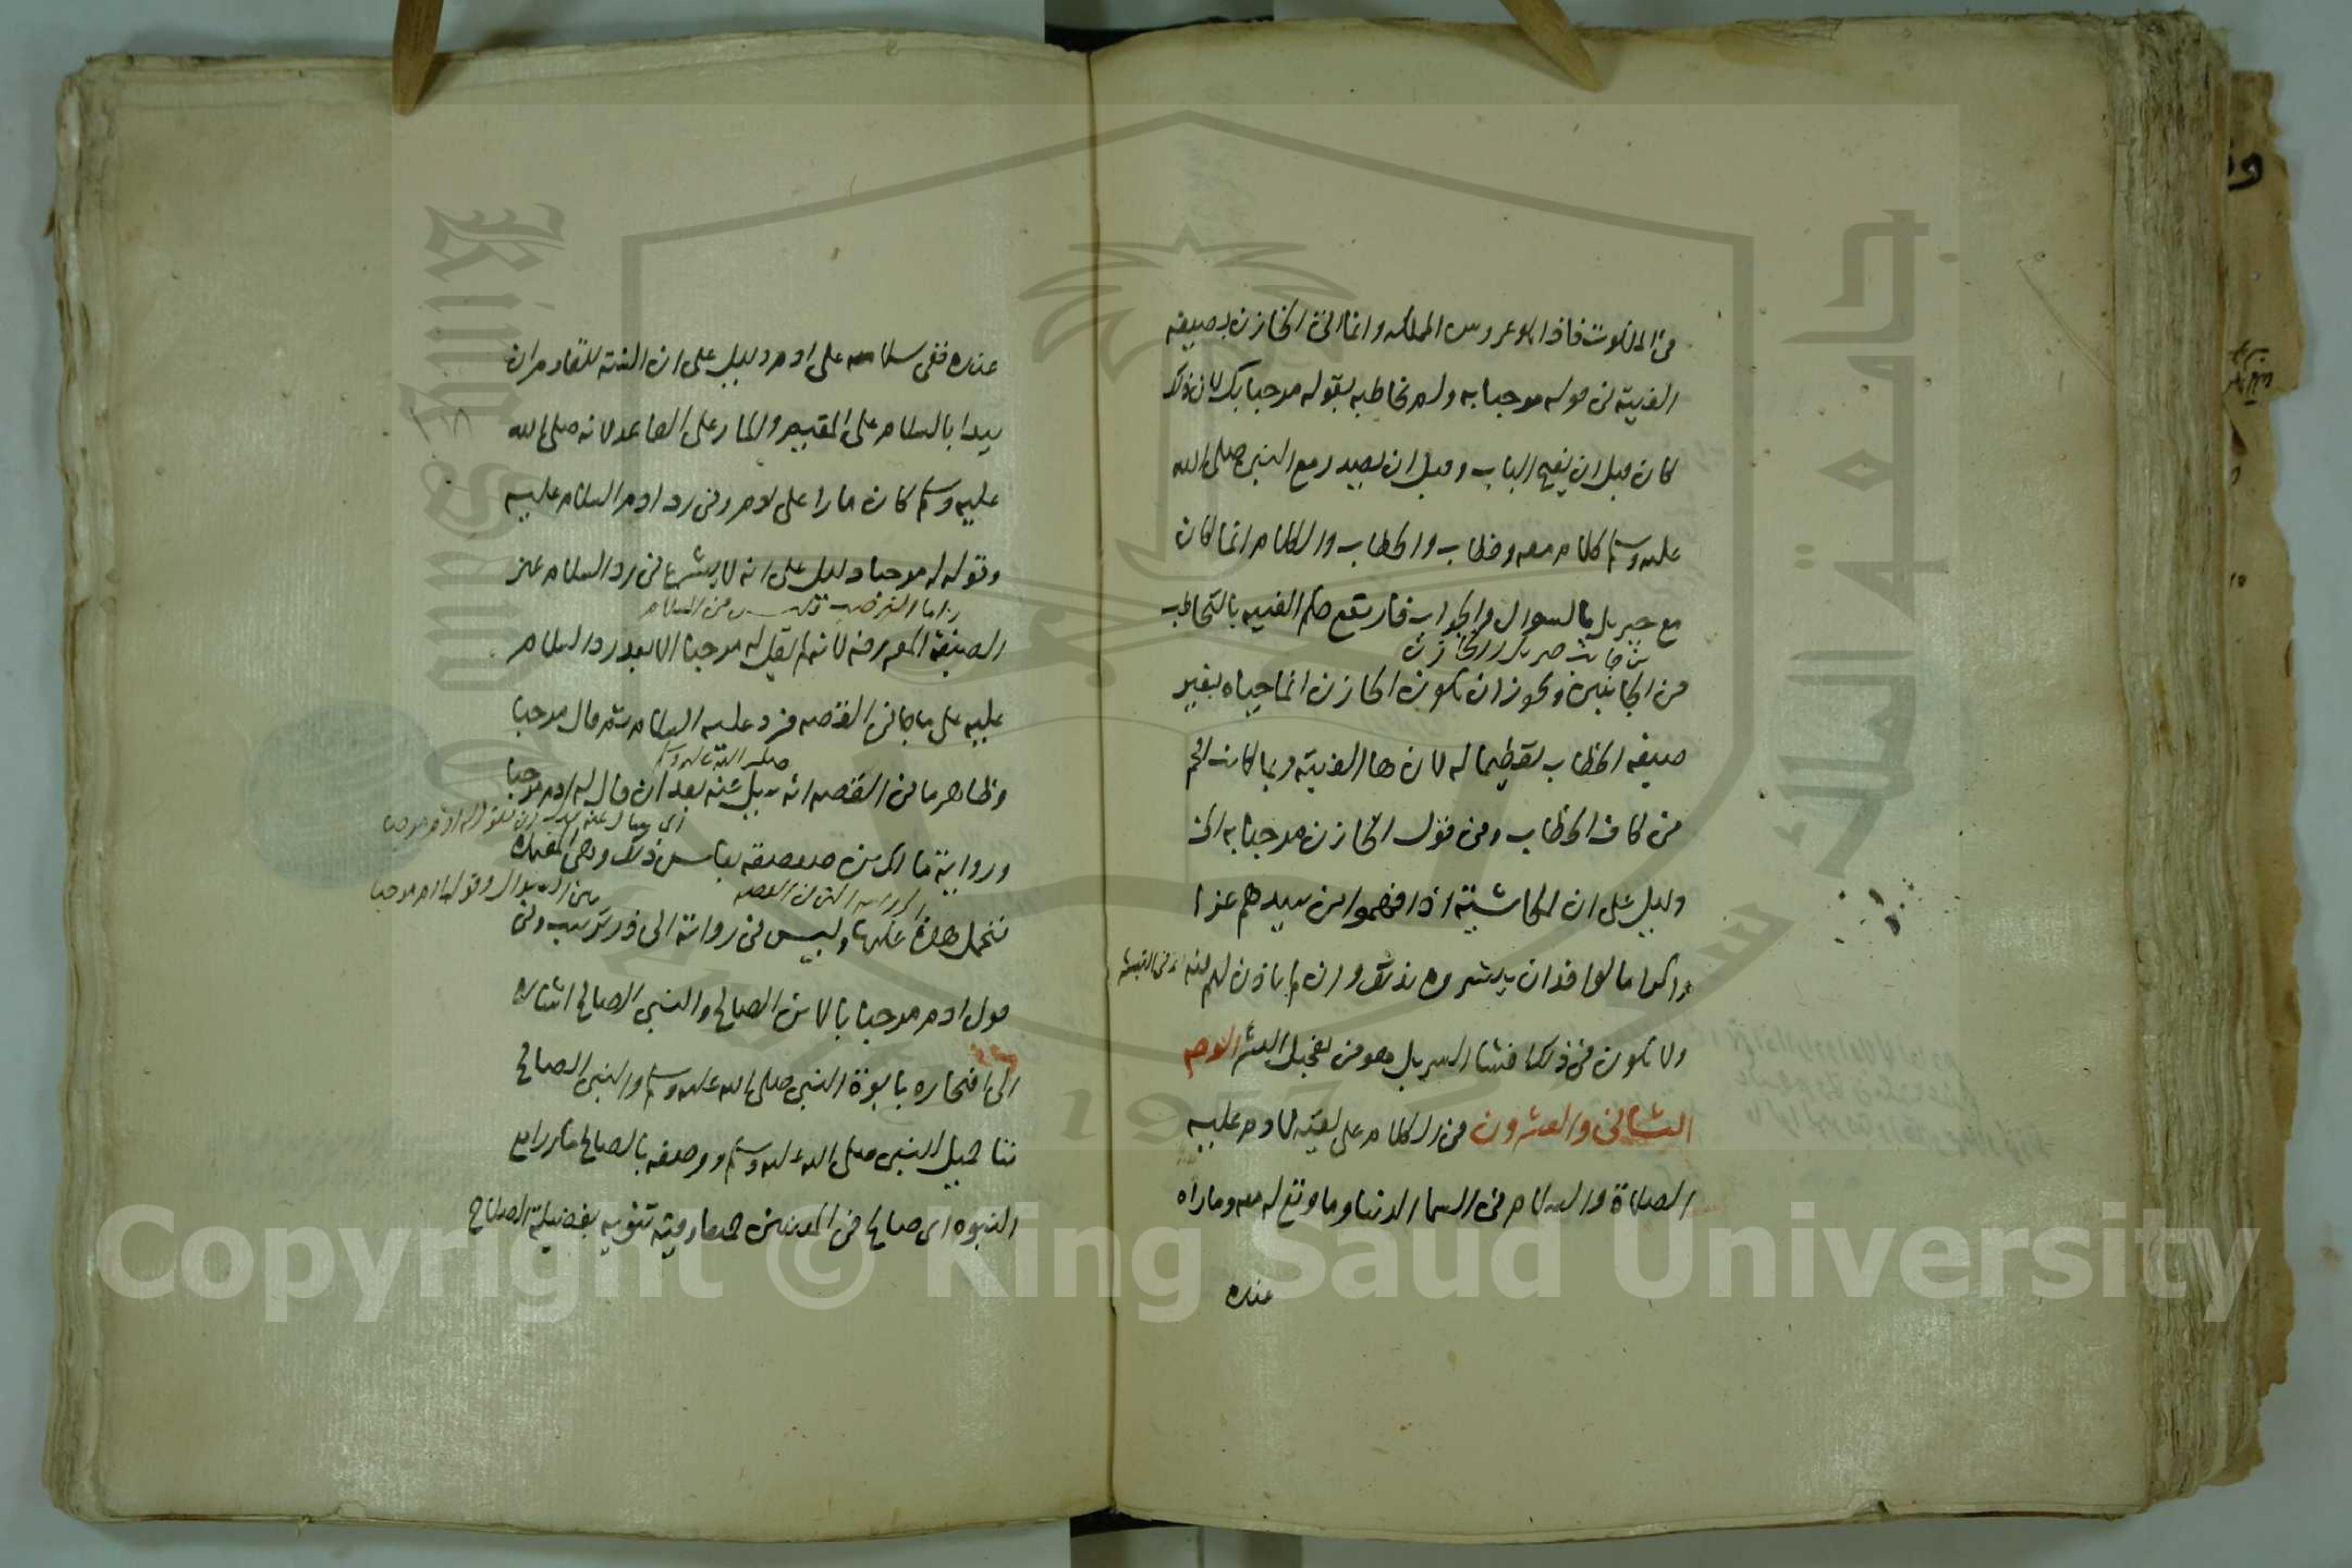 من الملكوت فاذا هو عروس المملكه وانما اتى الخازن بصيغة
الغيبة في قوله مرحبا به ولم يخاطبه بقوله مرحبا بك لان ذلك
كان قبل ان يفتح الباب وقبل ان يصدر مع النبي صلى الله
عليه وسلم كلام معه وخطاب والخطاب والكلام انما كان
مع جبريل بالسوال والجواب فارتفع حكم الغيبه بالتخاطب
من الجانبين ويجوز ان يكون الخازن انما حياه بغير
صيغه الخطاب تعظيما له لان هاء الغيبة ربما كانت افخم
من كاف الخطاب وفي قول الخازن مرحبا به الخ
دليل على ان الحاشية اذا فهموا من سيدهم عزا
واكراما لوافد ان يبشروه بذلك وان لم ياذن لهم فيه
ولا يكون في ذلك افشاء السر بل هو من تعجيل البشر الوجه
الثاني والعشرون في الكلام على لقيه لادم عليه
الصلاة والسلام في السما الدنيا وما وقع له معه وما راه
عنده
عنده ففي سلامه على ادم دليل على ان السنة للقادم ان
يبدا بالسلام على المقيم والمار على القاعد لانه صلى الله
عليه وسلم كان مارا على ادم وفي رد ادم السلام عليه
وقوله له مرحبا دليل على انه لا يشرع في رد السلام غير
الصيغة المعروفه لانه لم يقل له مرحبا الا بعد رد السلام
عليه على ما جا في القصه فرد عليه السلام ثم قال مرحبا
صلى الله عليه وسلم
وظاهر ما في القصه انه سيل عنه بعد ان قال له ادم مرحبا
ورواية مالك بن صعصعه بعكس ذلك وهي المعتمده
فتحمل هذه عليها وليس في رواية ابي ذر ترتيب وفي
قول ادم مرحبا بالابن الصالح والنبي الصالح اشاره
الى افتخاره بابوة النبي صلى الله عليه وسلم والنبي الصالح
ثنا جميل للنبي صلى الله عليه وسلم ووصفه بالصالح مكررا مع
النبوه اى صالح في المعنيين جميعا وفيه تنويه بفضيلة الصلاح
Copyright © King Saud University
1957